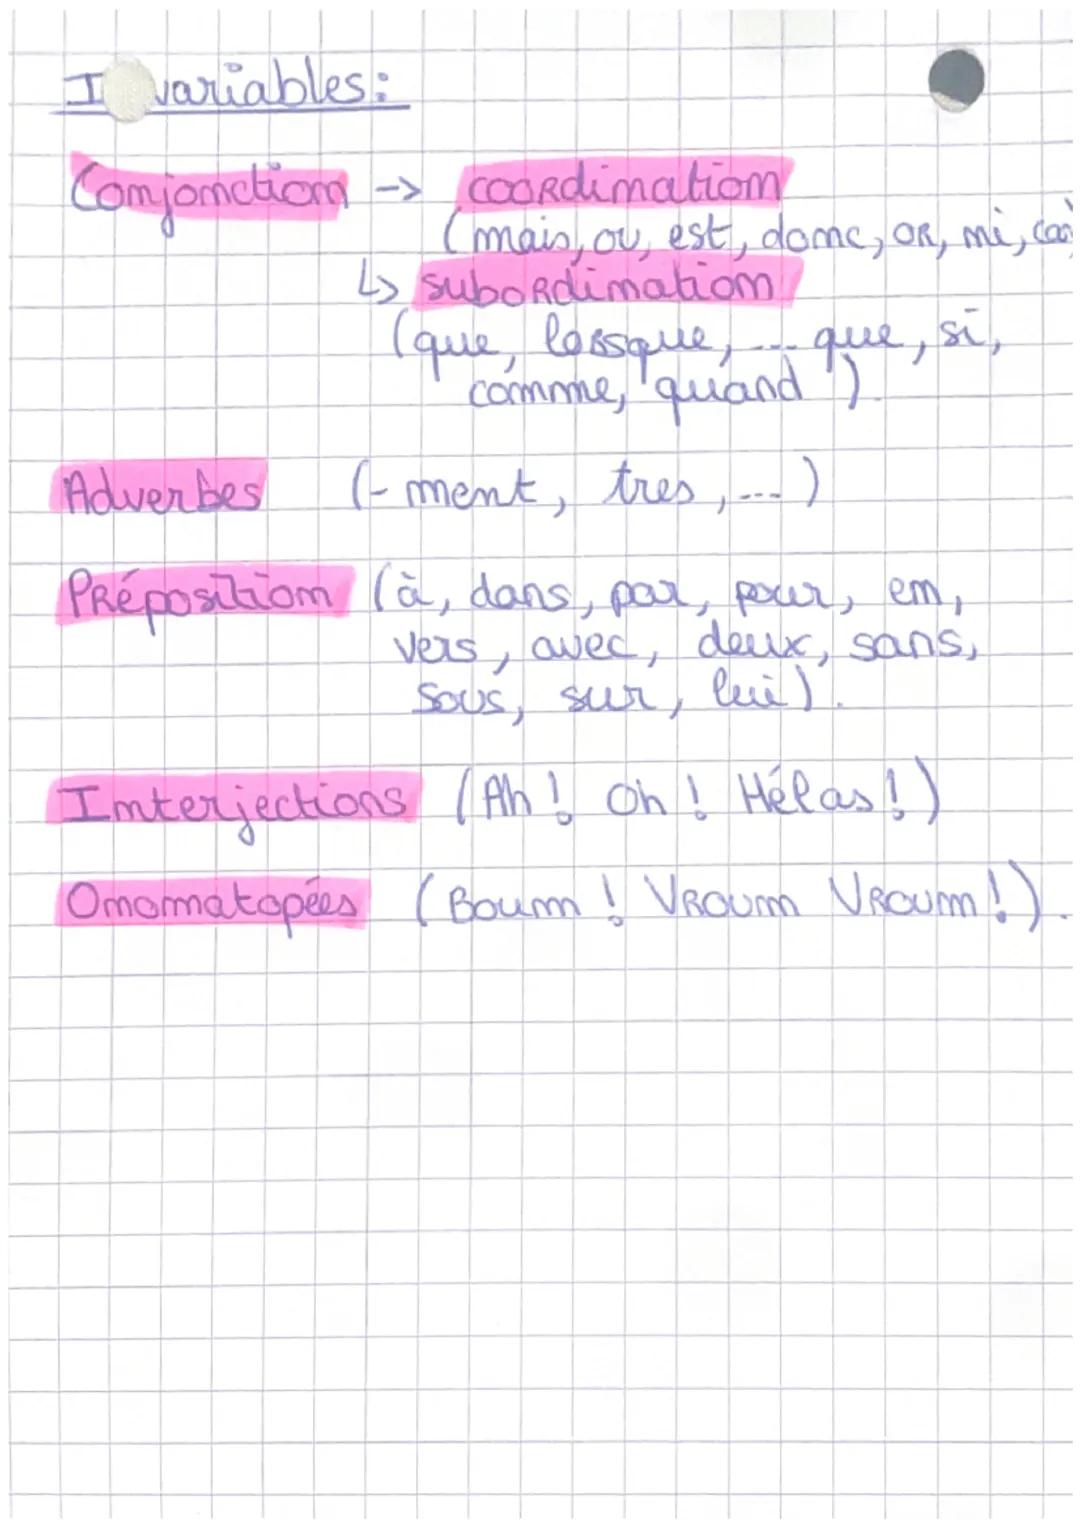 I variables:
Conjonction -> coordination
(mais, ou, est, donc, or, ni, car)
↳ subordination
(que, lorsque, ... que, si,
comme, quand ")
Adverbes (- ment, tres, ...)
Préposition (à, dans, par, pour, en,
vers, avec, deux, sans,
sous, sur, lui).
Interjections (Ah ! Oh ! Hélas !)
Onomatopées (Boum ! Vroum Vroum !).